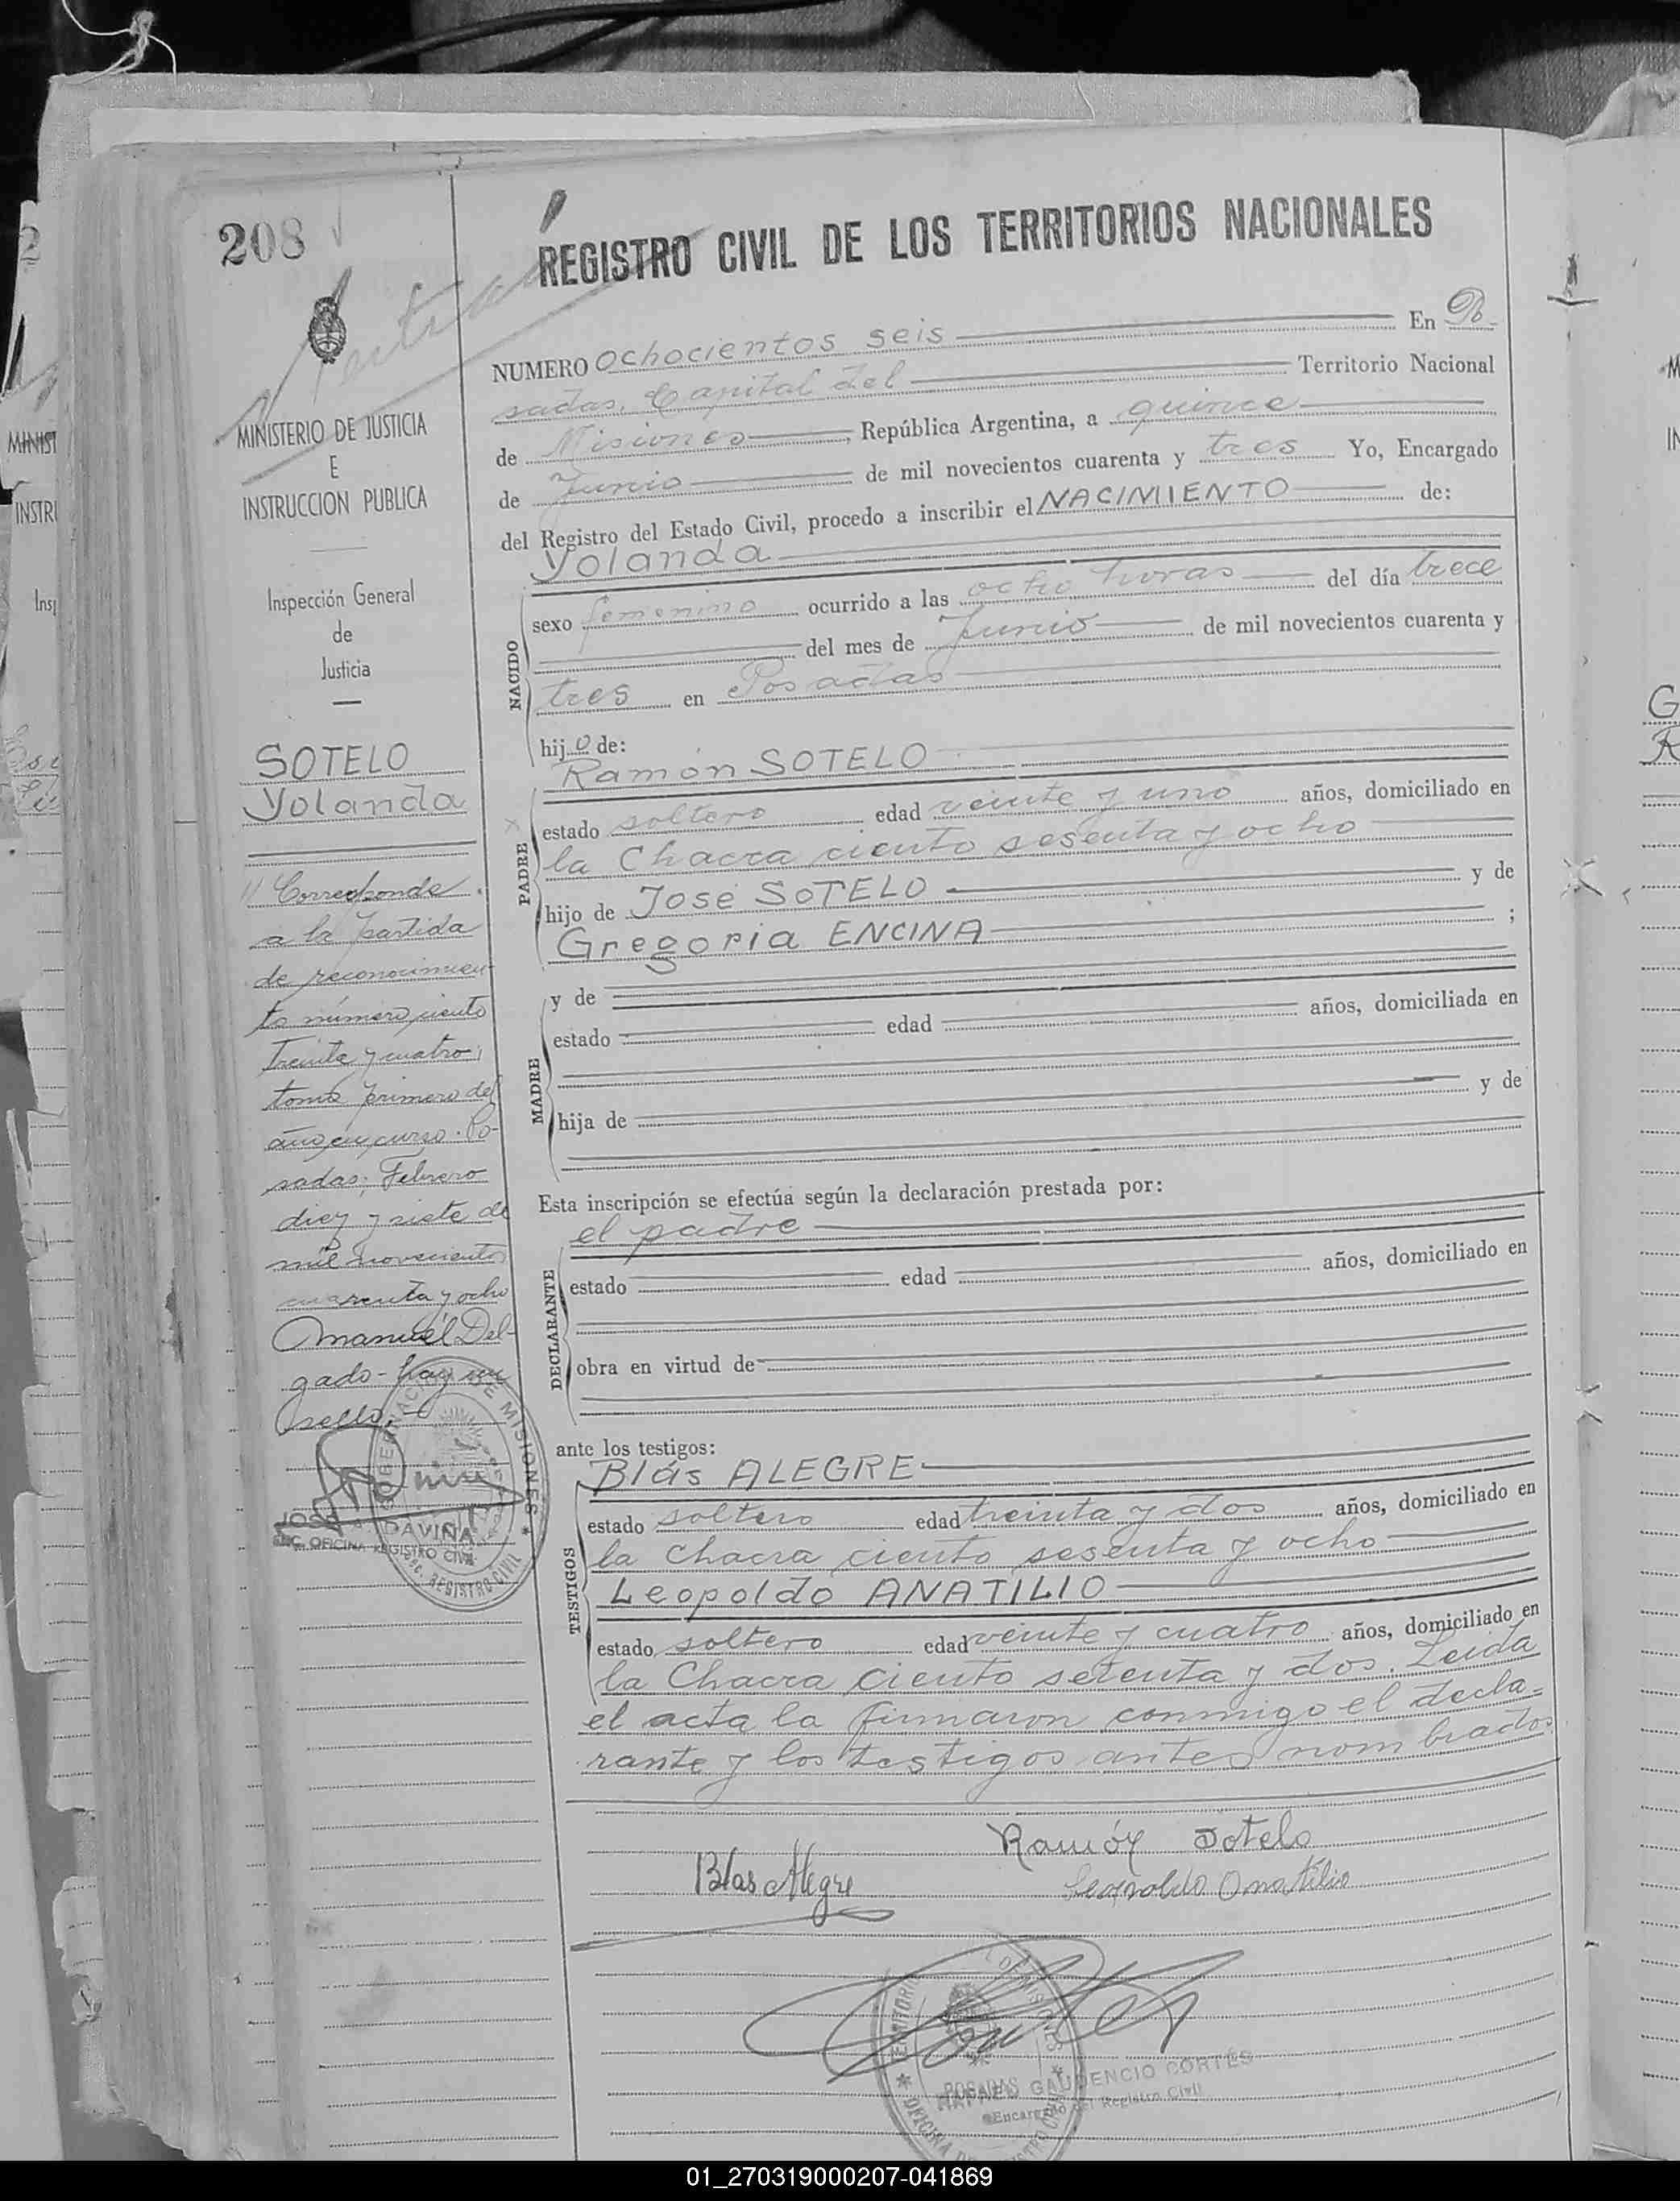 208
REGISTRO CIVIL DE LOS TERRITORIOS NACIONALES
MINISTERIO DE JUSTICIA
E
INSTRUCCION PUBLICA
Inspección General
de
Justicia
SOTELO
Yolanda
Corresponde
a la partida
de reconocimien-
to número ciento
treinta y cuatro,
tomo primero del
año en curso. Po-
sadas, Febrero
diez y siete de
mil novecientos
cuarenta y ocho
Manuel Del-
gado - hay un
sello.-
JOSE DAVIÑA
ENC. OFICINA REGISTRO CIVIL
NUMERO Ochocientos seis En Po-
sadas, Capital del Territorio Nacional
de Misiones, República Argentina, a quince
de Junio de mil novecientos cuarenta y tres Yo, Encargado
del Registro del Estado Civil, procedo a inscribir el NACIMIENTO de:
NACIDO
Yolanda
sexo femenino ocurrido a las ocho horas del día trece
del mes de Junio de mil novecientos cuarenta y
tres en Posadas
hijo de:
PADRE
Ramón SOTELO
estado soltero edad veinte y uno años, domiciliado en
la Chacra ciento sesenta y ocho
hijo de José SOTELO y de
Gregoria ENCINA ;
MADRE
y de
estado edad años, domiciliada en
hija de y de
Esta inscripción se efectúa según la declaración prestada por:
DECLARANTE
el padre
estado edad años, domiciliado en
obra en virtud de
ante los testigos:
TESTIGOS
Blás ALEGRE
estado soltero edad treinta y dos años, domiciliado en
la Chacra ciento sesenta y ocho
Leopoldo ANATILIO
estado soltero edad veinte y cuatro años, domiciliado en
la Chacra ciento setenta y dos. Leida
el acta la firmaron conmigo el decla-
rante y los testigos antes nombrados
Ramón Sotelo
Blas Alegre
Leopoldo Anatilio
POSADAS
GAUDENCIO CORTÉS
Encargado del Registro Civil
01_270319000207-041869